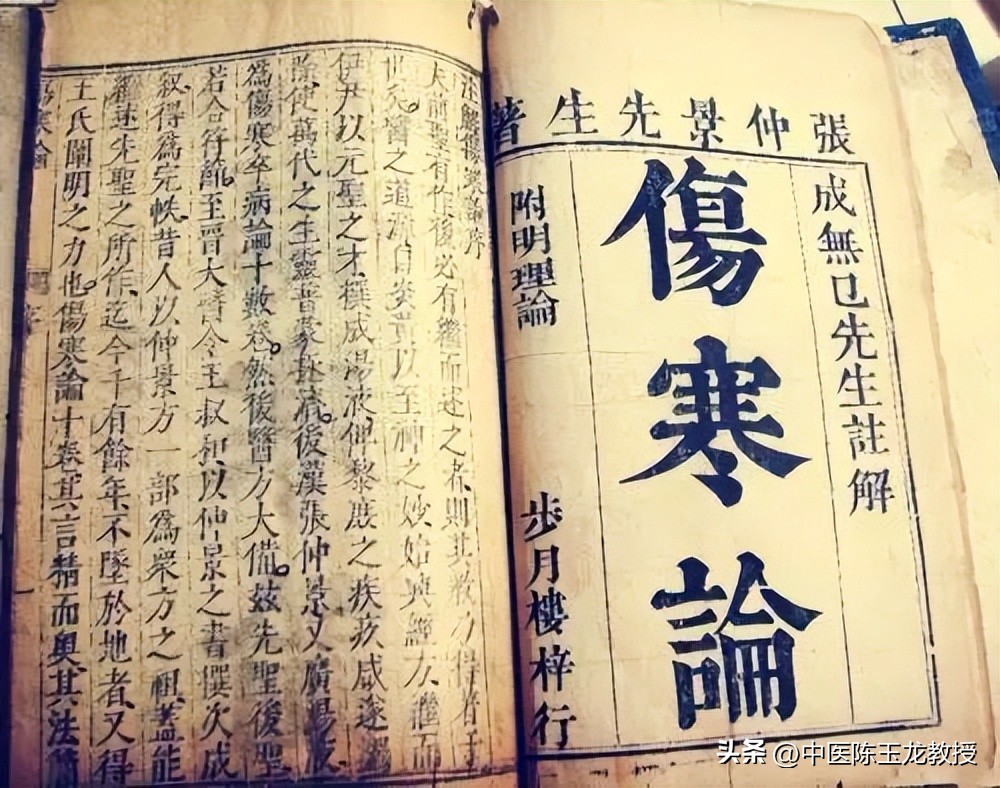 張仲景先生著
成無已先生註解
傷寒論
附明理論
步月樓梓行
註解傷寒論序
夫前聖有作後必有繼而述之者則其教乃得著于
世矣醫之道源自炎黃以至神之妙始興經方繼而
伊尹以元聖之才撰成湯液俾黎庶之疾疢咸遂蠲
除使萬代之生靈普蒙拯濟後漢張仲景又廣湯液
為傷寒卒病論十數卷然後醫方大備茲先聖後聖
若合符節至晉大醫令王叔和以仲景之書撰次成
叙得為完帙昔人以仲景方一部為衆方之祖蓋能
繼述先聖之所作迄今千有餘年不墜於地者又得
王氏闡明之力也傷寒論十卷其言精而奧其法簡
头条 @中医陈玉龙教授